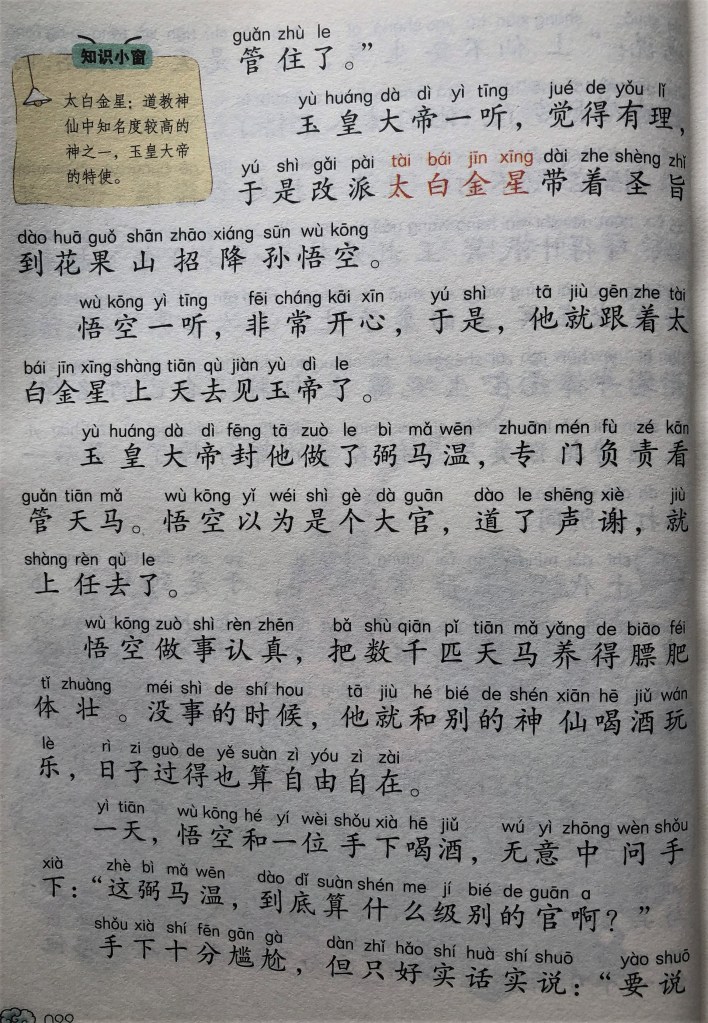 知识小窗
太白金星：道教神
仙中知名度较高的
神之一，玉皇大帝
的特使。
guǎn zhù le
管住了。”
yù huáng dà dì yì tīng jué de yǒu lǐ
玉皇大帝一听，觉得有理，
yú shì gǎi pài tài bái jīn xīng dài zhe shèng zhǐ
于是改派太白金星带着圣旨
dào huā guǒ shān zhāo xiáng sūn wù kōng
到花果山招降孙悟空。
wù kōng yì tīng fēi cháng kāi xīn yú shì tā jiù gēn zhe tài
悟空一听，非常开心，于是，他就跟着太
bái jīn xīng shàng tiān qù jiàn yù dì le
白金星上天去见玉帝了。
yù huáng dà dì fēng tā zuò le bì mǎ wēn zhuān mén fù zé kān
玉皇大帝封他做了弼马温，专门负责看
guǎn tiān mǎ wù kōng yǐ wéi shì gè dà guān dào le shēng xiè jiù
管天马。悟空以为是个大官，道了声谢，就
shàng rèn qù le
上任去了。
wù kōng zuò shì rèn zhēn bǎ shù qiān pǐ tiān mǎ yǎng de biāo féi
悟空做事认真，把数千匹天马养得膘肥
tǐ zhuàng méi shì de shí hou tā jiù hé bié de shén xiān hē jiǔ wán
体壮。没事的时候，他就和别的神仙喝酒玩
lè rì zi guò de yě suàn zì yóu zì zài
乐，日子过得也算自由自在。
yì tiān wù kōng hé yí wèi shǒu xià hē jiǔ wú yì zhōng wèn shǒu
一天，悟空和一位手下喝酒，无意中问手
xià zhè bì mǎ wēn dào dǐ suàn shén me jí bié de guān a
下：“这弼马温，到底算什么级别的官啊？”
shǒu xià shí fēn gān gà dàn zhǐ hǎo shí huà shí shuō yào shuō
手下十分尴尬，但只好实话实说：“要说